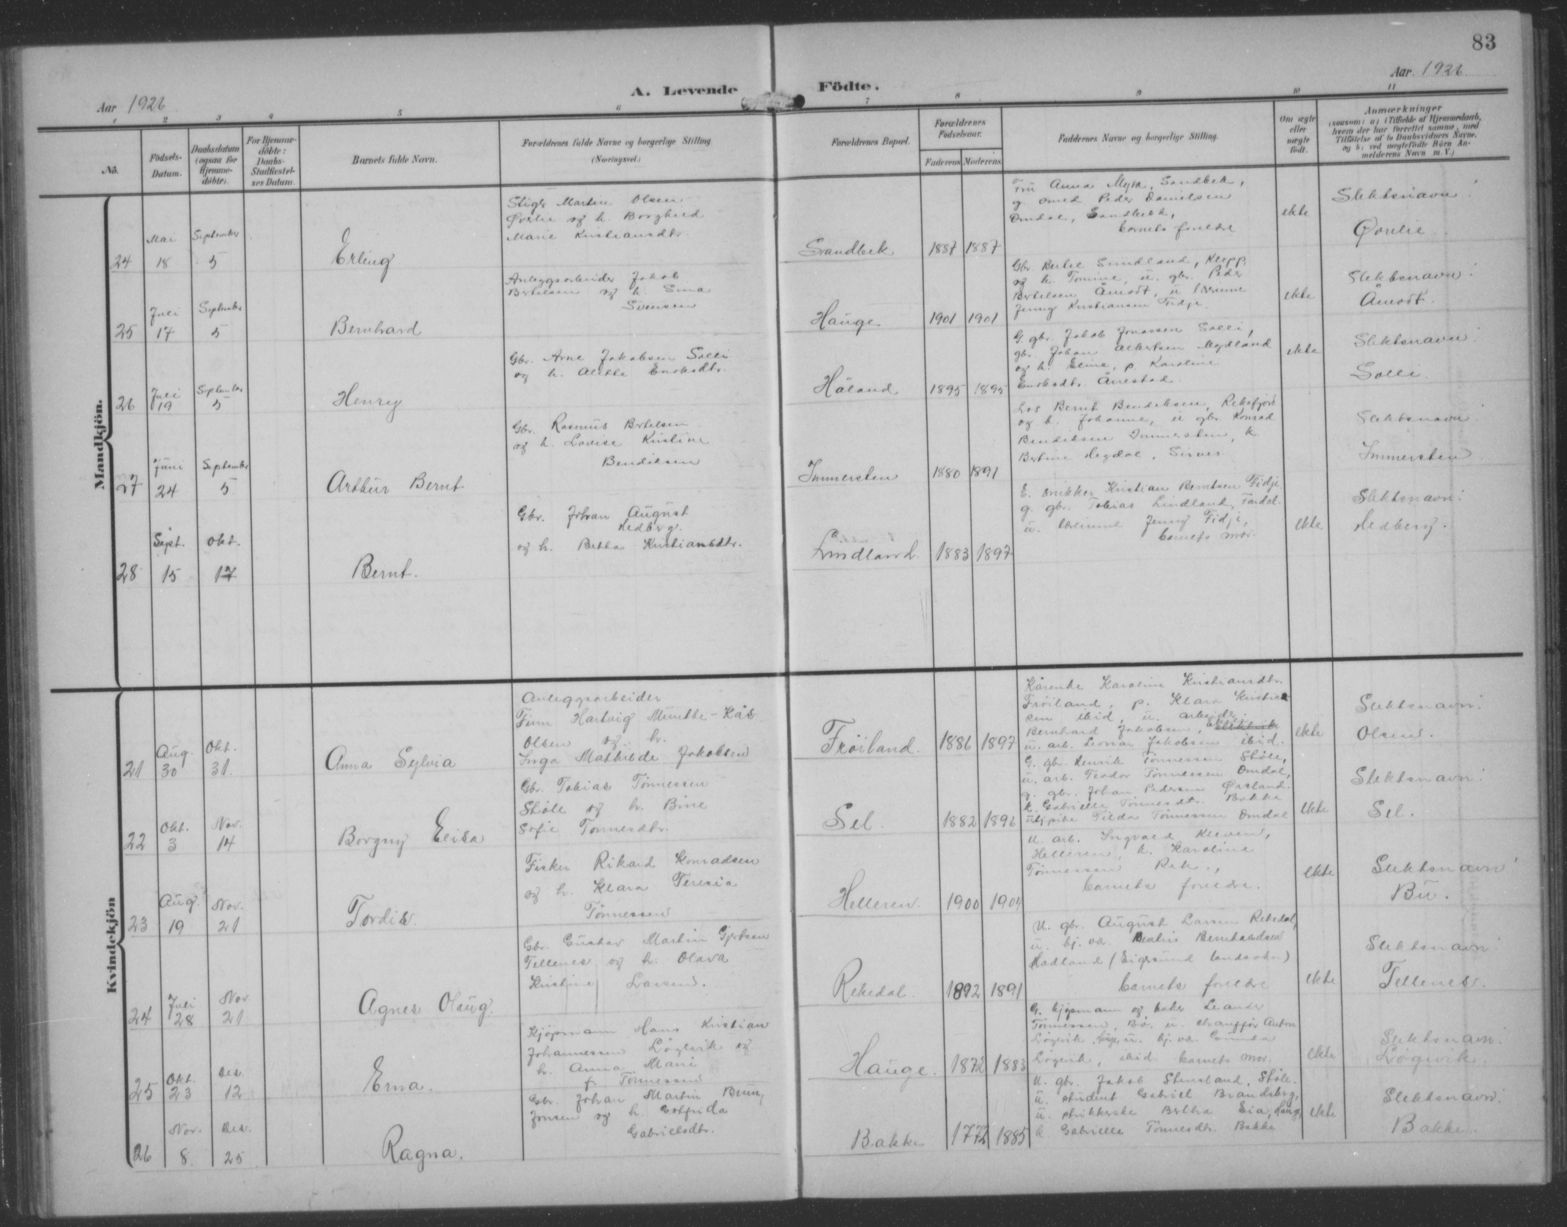 83
Aar 1926
A. Levende Födte.
Aar 1926
1 2 3 4 5 6 7 8 9 10 11
No.
Födsels-Datum.
Daabsdatum (ogsaa for Hjemmedöbte).
For Hjemmedöbte: Daabs-Stadfæstelses Datum
Barnets fulde Navn.
Forældrenes fulde Navne og borgerlige Stilling (Næringsvei)
Forældrenes Bopæl.
Forældrenes Födselsaar.
Faderens Moderens
Faddernes Navne og borgerlige Stilling.
Om ægte eller uægte födt.
Anmærkninger
Mandkjön.
24 Mai 18 September 5 Erling
Martin Olsen
Ørslie og h. Borghild
Marie Kristiansdtr.
Sandbek 1887 1887
Fru Anna Myra, Sandbek,
g. smed Peder Danielsen
Omdal, Sandbekk,
barnets foreldre
ekte
Slektsnavn:
Ørslie
25 Juli 17 September 5 Bernhard
Anleggsarbeider Jakob
Bertelsen og h. Sina
Svensen
Hauge 1901 1901
Gbr. Bertie Sundland, Klepp
og h. Tomine, u. gbr. Peder
Bertelsen Åmodt, u.
Jenny Kristiansen Fidje
ekte
Slektsnavn:
Åmodt.
26 Juli 19 September 5 Henry
Gbr. Arne Jakobsen Solli
og h. Alette
Håland 1895 1895
G. gbr. Jakob Jonassen Solli,
gbr. Johan Albertsen Mydland
og h. Elina, p. Karoline
Ånestad
ekte
Slektsnavn:
Solli
27 Juni 24 September 5 Arthur Bernt
Gbr. Rasmus Bertelsen
og h. Lovise Kristine
Bendiksen
Immersten 1880 1891
Los Bernt Bendiksen, Rekefjord
og h. Johanne, u. gbr. Konrad
Bendiksen Immersten, k.
Bertine Hegdal, Sirnes
Slektsnavn:
Immersten
28 Sept. 15 Okt. 17 Bernt.
Gbr. Johan August
Hedberg.
og h. Betha Kristiansdtr.
Lindland 1883 1897
E. snekker Kristian Berntsen Fidje
g. gbr. Tobias Lindland,
u. Jenny Fidje,
barnets mor.
ekte
Slektsnavn:
Hedberg.
Kvindekjön
21 Aug. 30 Okt. 31. Anna Sylvia
Anleggsarbeider
Finn Hartvig Munthe-Kås
Olsen og h.
Inga Mathilde Jakobsen
Frøiland. 1886 1897
Karoline Kristiansdtr.
Frøiland, p. Klara Kristian
sen ibid, u. arbeider
Bernhard Jakobsen,
u. arb. Jakobsen ibid.
ekte
Slektsnavn:
Olsen.
22 Okt. 3 Nov. 14 Borgny Elisa
Gbr. Tobias Tønnessen
Skåle og h. Bine
Sofie Tønnesdtr.
Sel. 1882 1896
G. gbr. Henrik Tønnessen Skåle,
u. arb. Teodor Tønnessen Omdal,
g. gbr. Johan Pedersen Ørsland.
k. Gabrielle Tønnesdtr. Bakke
u. pike Tilda Tønnessen Omdal
ekte
Slektsnavn:
Sel.
23 Aug. 19 Nov. 21 Tordis
Fisker Rikard Konradsen
og h. Klara Teresia
Tønnessen
Helleren 1900 1904
U. arb. Ingvald Kleven,
Helleren, k. Karoline
Tønnessen Rek.,
barnets foreldre.
ekte
Slektsnavn:
Bu.
24 Juli 28 Nov 21 Agnes Olaug.
Gbr. Gustav Martin Gjertsen
Tellenes og h. Olava
Kristine Larsen.
Rekedal 1892 1891
U. gbr. August Larsen Rekedal,
u. hj. va. Berntsen
Hadland (Eigersund landsokn)
barnets foreldre
ekte
Slektsnavn:
Tellenes.
25 Okt. 23 Des. 12 Erna.
Kjøpmann Hans Kristian
Johannessen Løgevik og
h. Anna Mari
f. Tønnessen
Hauge. 1872 1883
G. kjøpmann og Leander
Tønnessen, Bø, u. chauffør Anton
Løgevik, u. hj. va.
Løgevik, ibid. barnets mor.
ekte
Slektsnavn:
Løgevik.
26 Nov. 8. Des. 25 Ragna.
Gbr. Johan Martin
Jonsen og h. Golfrida
Gabrielsdtr.
Bakke 1772 1885
U. gbr. Jakob Skåle.
u. student Gabriel Brandsberg,
u. strikkerske Bertha Eia, Haug.
k. Gabrielle Tønnesdtr. Bakke
ekte
Slektsnavn:
Bakke